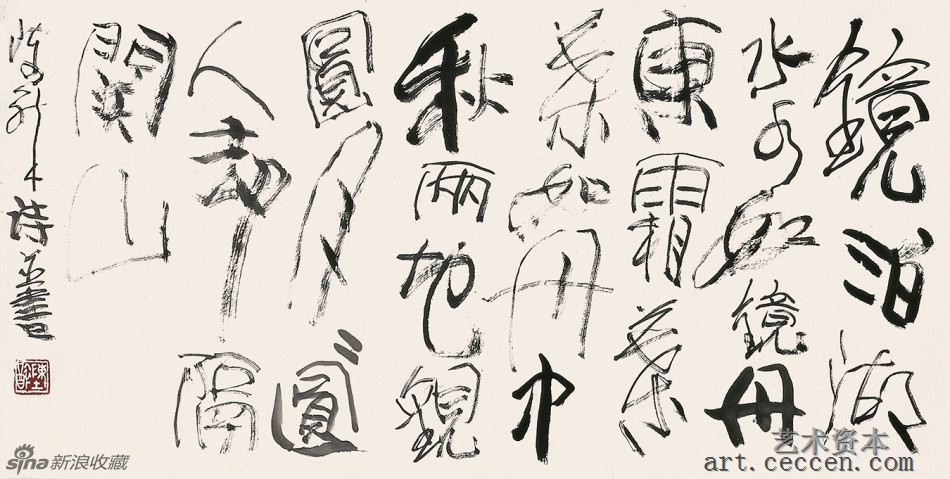 鏡泊湖
水水如鏡丹
東霜葉
葉如丹中
秋兩地觀
圓月〻圓
人却隔
關山
詩並書
sina新浪收藏
艺术资本
art.ceccen.com